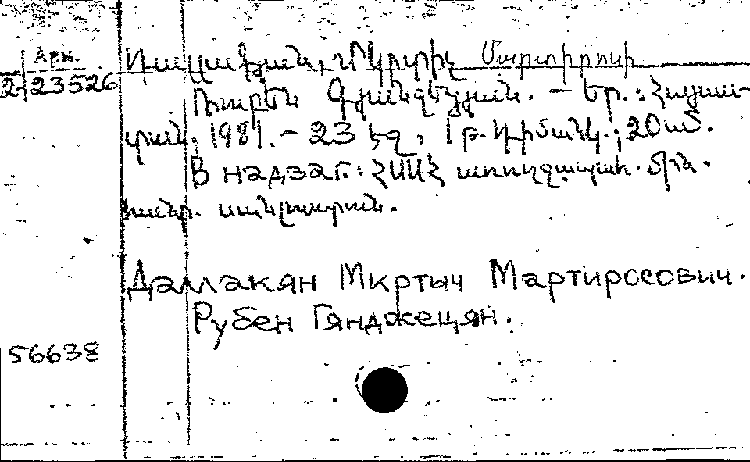 Арм.
2-23526
Դալլաքյան, Մկրտիչ Մարտիրոսի
Ռուբեն Գյանջեցյան. – Եր.: Հայաս-
տան, 1981. – 23 էջ, 1 թ. դիմանկ.; 20 սմ.
В надзаг.: ՀՍՍՀ առողջապահ. մ-ն.
հանր. սանլուստուն.
Даллакян Мкртыч Мартиросович.
Рубен Гянджецян.
56638